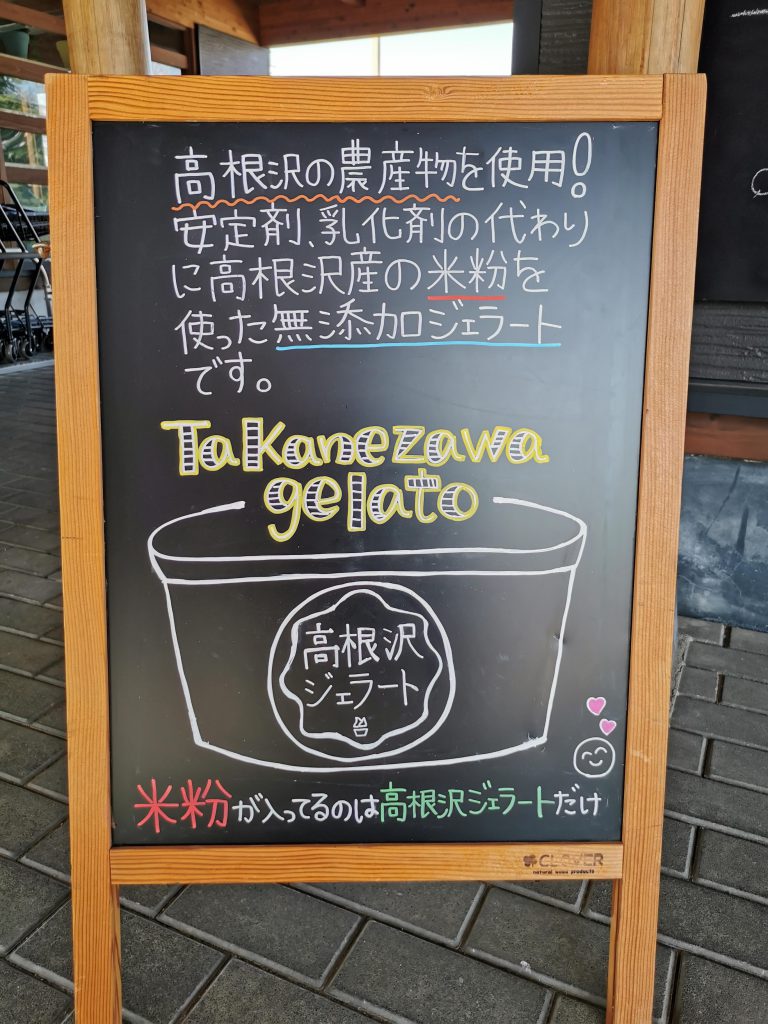 高根沢の農産物を使用!
安定剤、乳化剤の代わり
に高根沢産の米粉を
使った無添加ジェラート
です。
Takanezawa
gelato
高根沢
ジェラート
米粉が入ってるのは高根沢ジェラートだけ
CLOVER
natural wood products